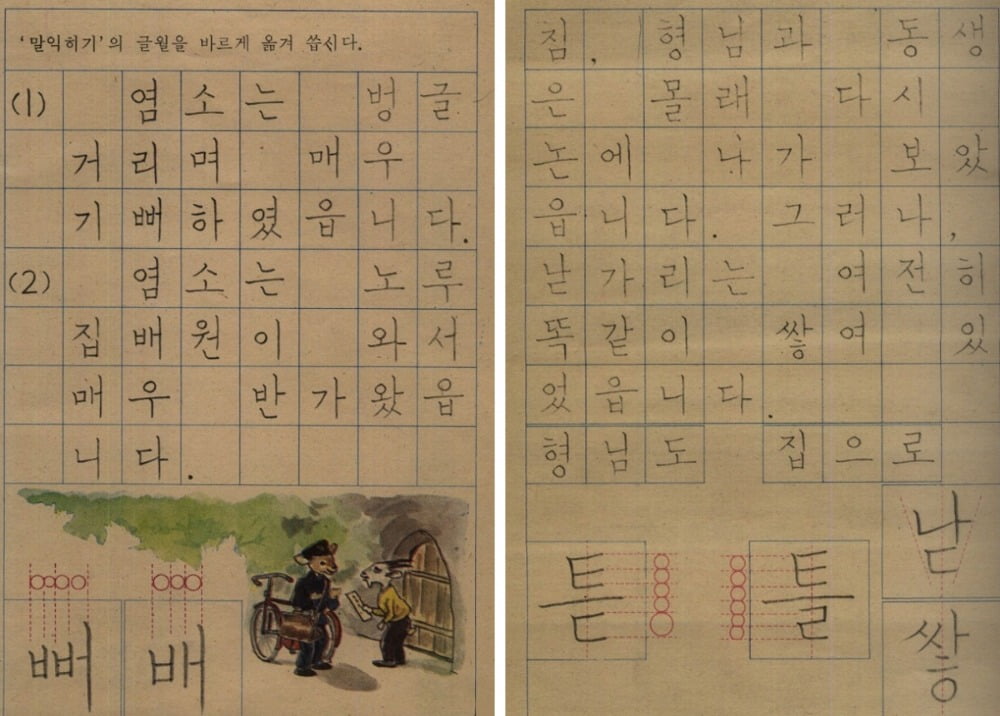 '말익히기'의 글월을 바르게 옮겨 씁시다.
(1) 염소는 벙글
거리며 매우
기뻐하였읍니다.
(2) 염소는 노루
집배원이 와서
매우 반가왔읍
니다.
뻐 배
침, 형님과 동생
은 몰래 다시
논에 나가 보았
읍니다. 그러나,
낟가리는 여전히
똑같이 쌓여 있
었읍니다.
형님도 집으로
낟
튿 틀
쌓